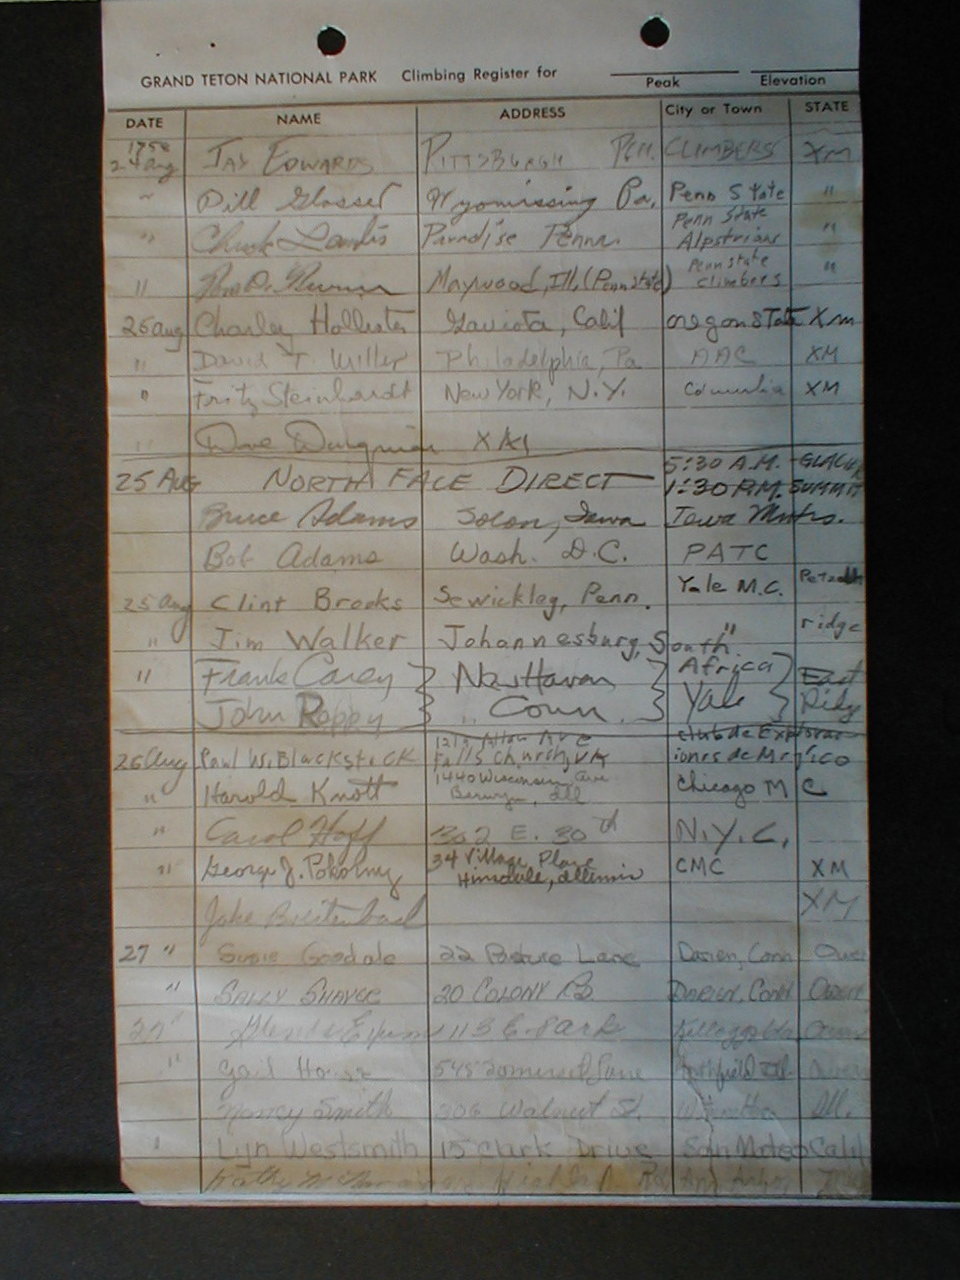 GRAND TETON NATIONAL PARK Climbing Register for
Peak Elevation
DATE NAME ADDRESS City or Town STATE
1958
24 Aug JAY EDWARDS PITTSBURGH CLIMBERS XM
" Bill Glosser Wyomissing Pa. Penn State "
" Chuck Landis Paradise Penna. Penn State Alpstrians "
" Maywood, Ill. (Penn State) Penn state climbers "
25 aug Charley Hollister Gaviota, Calif oregon State Xm
" David T. Miller Philadelphia, Pa AAC XM
" Fritz Steinhardt New York, N.Y. Columbia XM
" Dave XM
25 Aug NORTH FACE DIRECT 5:30 A.M. GLACIER
1:30 P.M. SUMMIT
Bruce Adams Solon, Iowa Iowa Mntrs.
Bob Adams Wash. D.C. PATC
25 aug Clint Brooks Sewickley, Penn. Yale M.C. Petzoldt
" Jim Walker Johannesburg, South " ridge
" Frank Carey New Haven Africa East
John Reppy Conn. Yale Ridge
26 Aug Paul W. Blackstock Ave Falls Church, VA club de Explorac
iones de Mexico
" Harold Knott 1440 Wisconsin Ave Berwyn, Ill Chicago M C
" Carol Hoff 302 E. 30th N.Y.C.
" George J. Pokorny 34 Village Place Hinsdale, Illinois CMC XM
Jake Breitenbach XM
27 " Susie Goodale 22 Lane Darien, Conn Owen
" SALLY 20 COLONY RD. DARIEN, CONN Owen
27 " 113 E. Park Owen
" Gail 545 Somerset Lane Northfield Ill. Owen
Nancy Smith Walnut St. Ill.
" Lyn Westsmith 15 Clark Drive San Mateo Calif
Kathy Rd. Ann Arbor